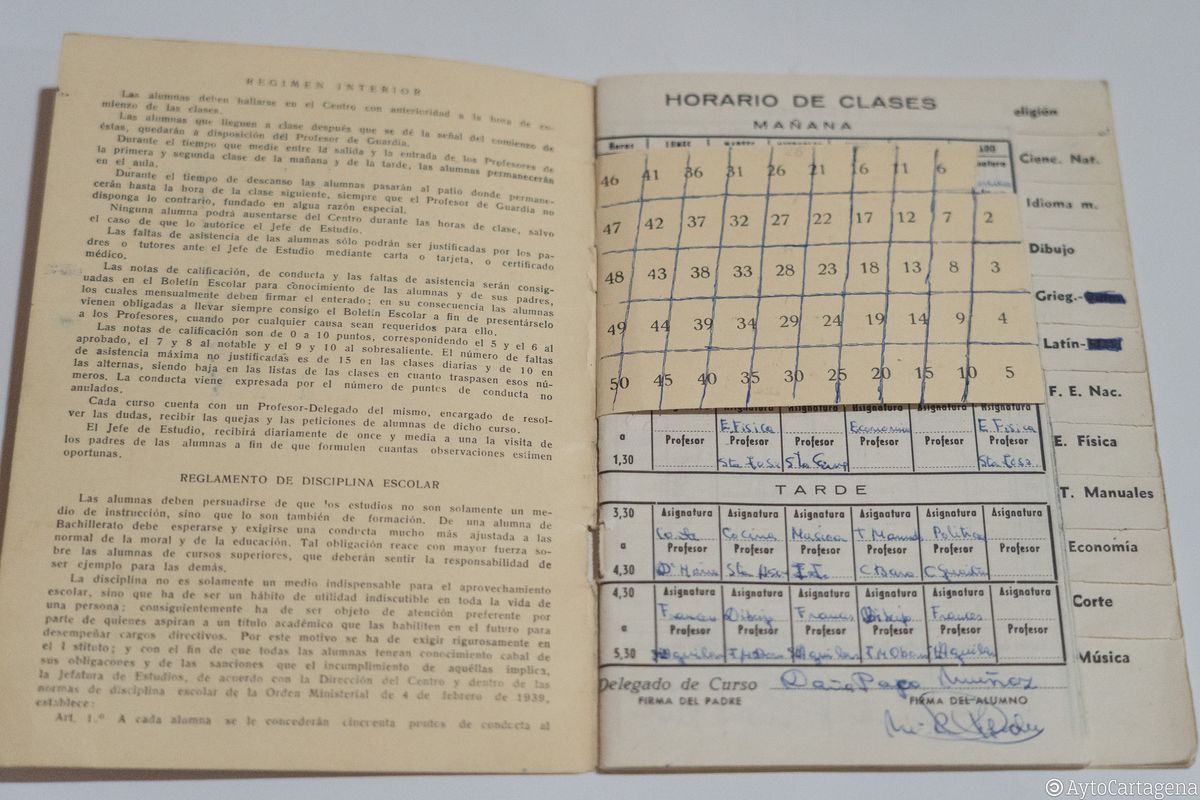 REGIMEN INTERIOR
Las alumnas deben hallarse en el Centro con anterioridad a la hora de co-
mienzo de las clases.
Las alumnas que lleguen a clase después que se dé la señal del comienzo de
éstas, quedarán a disposición del Profesor de Guardia.
Durante el tiempo que medie entre la salida y la entrada de los Profesores de
la primera y segunda clase de la mañana y de la tarde, las alumnas permanecerán
en el aula.
Durante el tiempo de descanso las alumnas pasarán al patio donde permane-
cerán hasta la hora de la clase siguiente, siempre que el Profesor de Guardia no
disponga lo contrario, fundado en algua razón especial.
Ninguna alumna podrá ausentarse del Centro durante las horas de clase, salvo
el caso de que lo autorice el Jefe de Estudio.
Las faltas de asistencia de las alumnas sólo podrán ser justificadas por los pa-
dres o tutores ante el Jefe de Estudio mediante carta o tarjeta, o certificado
médico.
Las notas de calificación, de conducta y las faltas de asistencia serán consig-
nuadas en el Boletín Escolar para conocimiento de las alumnas y de sus padres,
los cuales mensualmente deben firmar el enterado; en su consecuencia las alumnas
vienen obligadas a llevar siempre consigo el Boletín Escolar a fin de presentárselo
a los Profesores, cuando por cualquier causa sean requeridos para ello.
Las notas de calificación son de 0 a 10 puntos, correspondiendo el 5 y el 6 al
aprobado, el 7 y 8 al notable y el 9 y 10 al sobresaliente. El número de faltas
de asistencia máxima no justificadas es de 15 en las clases diarias y de 10 en
las alternas, siendo baja en las listas de las clases en cuanto traspasen esos nú-
meros. La conducta viene expresada por el número de puntos de conducta no
anulados.
Cada curso cuenta con un Profesor-Delegado del mismo, encargado de resol-
ver las dudas, recibir las quejas y las peticiones de alumnas de dicho curso.
El Jefe de Estudio, recibirá diariamente de once y media a una la visita de
los padres de las alumnas a fin de que formulen cuantas observaciones estimen
oportunas.
REGLAMENTO DE DISCIPLINA ESCOLAR
Las alumnas deben persuadirse de que los estudios no son solamente un me-
dio de instrucción, sino que lo son también de formación. De una alumna de
Bachillerato debe esperarse y exigirse una conducta mucho más ajustada a las
normal de la moral y de la educación. Tal obligación reace con mayor fuerza so-
bre las alumnas de cursos superiores, que deberán sentir la responsabilidad de
ser ejemplo para las demás.
La disciplina no es solamente un medio indispensable para el aprovechamiento
escolar, sino que ha de ser un hábito de utilidad indiscutible en toda la vida de
una persona; consiguientemente ha de ser objeto de atención preferente por
parte de quienes aspiran a un título académico que las habiliten en el futuro para
desempeñar cargos directivos. Por este motivo se ha de exigir rigurosamente en
el I stituto; y con el fin de que todas las alumnas tengan conocimiento cabal de
sus obligacones y de las sanciones que el incumplimiento de aquéllas implica,
la Jefatura de Estudios, de acuerdo con la Dirección del Centro y dentro de las
normas de disciplina escolar de la Orden Ministerial de 4 de febrero de 1939,
establece:
Art. 1.º A cada alumna se le concederán cincuenta puntos de conducta al
HORARIO DE CLASES
MAÑANA
46 41 36 31 26 21 16 11 6
47 42 37 32 27 22 17 12 7 2
48 43 38 33 28 23 18 13 8 3
49 44 39 34 29 24 19 14 9 4
50 45 40 35 30 25 20 15 10 5
Asignatura Asignatura Asignatura Asignatura Asignatura Asignatura
E. Física Economía E. Física
a Profesor Profesor Profesor Profesor Profesor Profesor
1,30
TARDE
3,30 Asignatura Asignatura Asignatura Asignatura Asignatura Asignatura
Cocina Música T. Manual Política
a Profesor Profesor Profesor Profesor Profesor Profesor
4,30
4,30 Asignatura Asignatura Asignatura Asignatura Asignatura Asignatura
Frances Dibujo Frances Dibujo Frances
a Profesor Profesor Profesor Profesor Profesor Profesor
5,30
Delegado de Curso Muñoz
FIRMA DEL PADRE FIRMA DEL ALUMNO
eligión
Cienc. Nat.
Idioma m.
Dibujo
Grieg.-
Latín-
F. E. Nac.
E. Física
T. Manuales
Economía
Corte
Música
© AytoCartagena